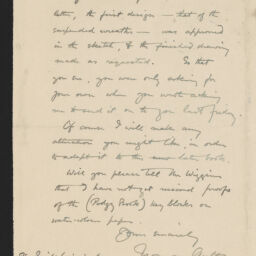 letter, the first design — that of the
suspended wreaths — was approved
in the sketch, & the finished drawing
made as requested. So that
you see, you were only asking for
your own when you wrote asking
me to send it on to you last friday.
Of course I will make any
alteration you might like, in order
to adapt it to the later book.
Will you please tell Mr Wiggins
that I have not yet received proofs
of the (Podgy Book) key blocks on
water-colour paper.
Yours sincerely